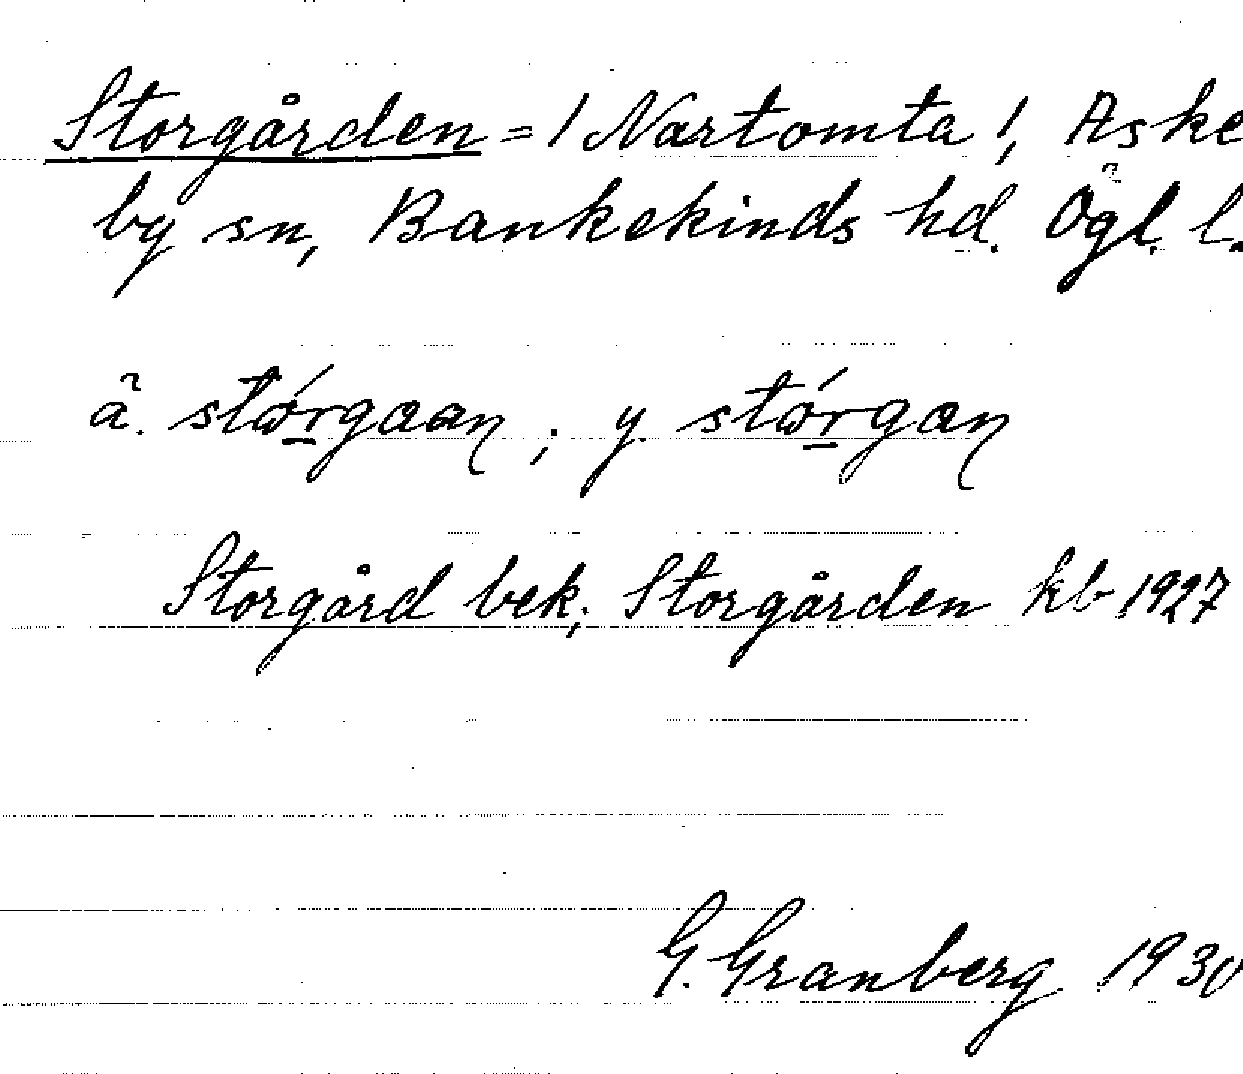 Storgården = / Nartomta /, Aske
by sn, Bankekinds hd. Ögl. l.
ä. stórgaan ; y. stórgan
Storgård bek; Storgården kb 1927
G. Granberg 1930